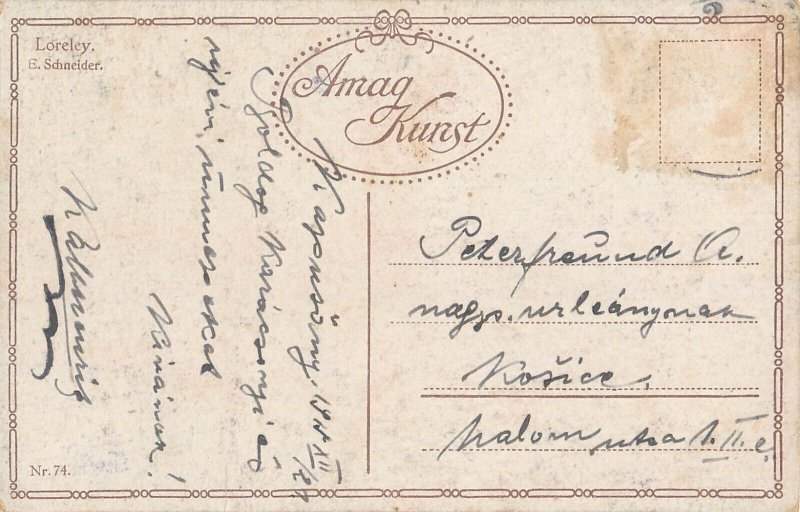 Loreley.
E. Schneider.
Amag
Kunst
XII/21
Boldog Karácsonyi és
ujévi ünnepeket
kívánnak!
Peterfreund A.
nagys. urleánynak
Košice.
Malom utca 1. II. e.
Nr. 74.